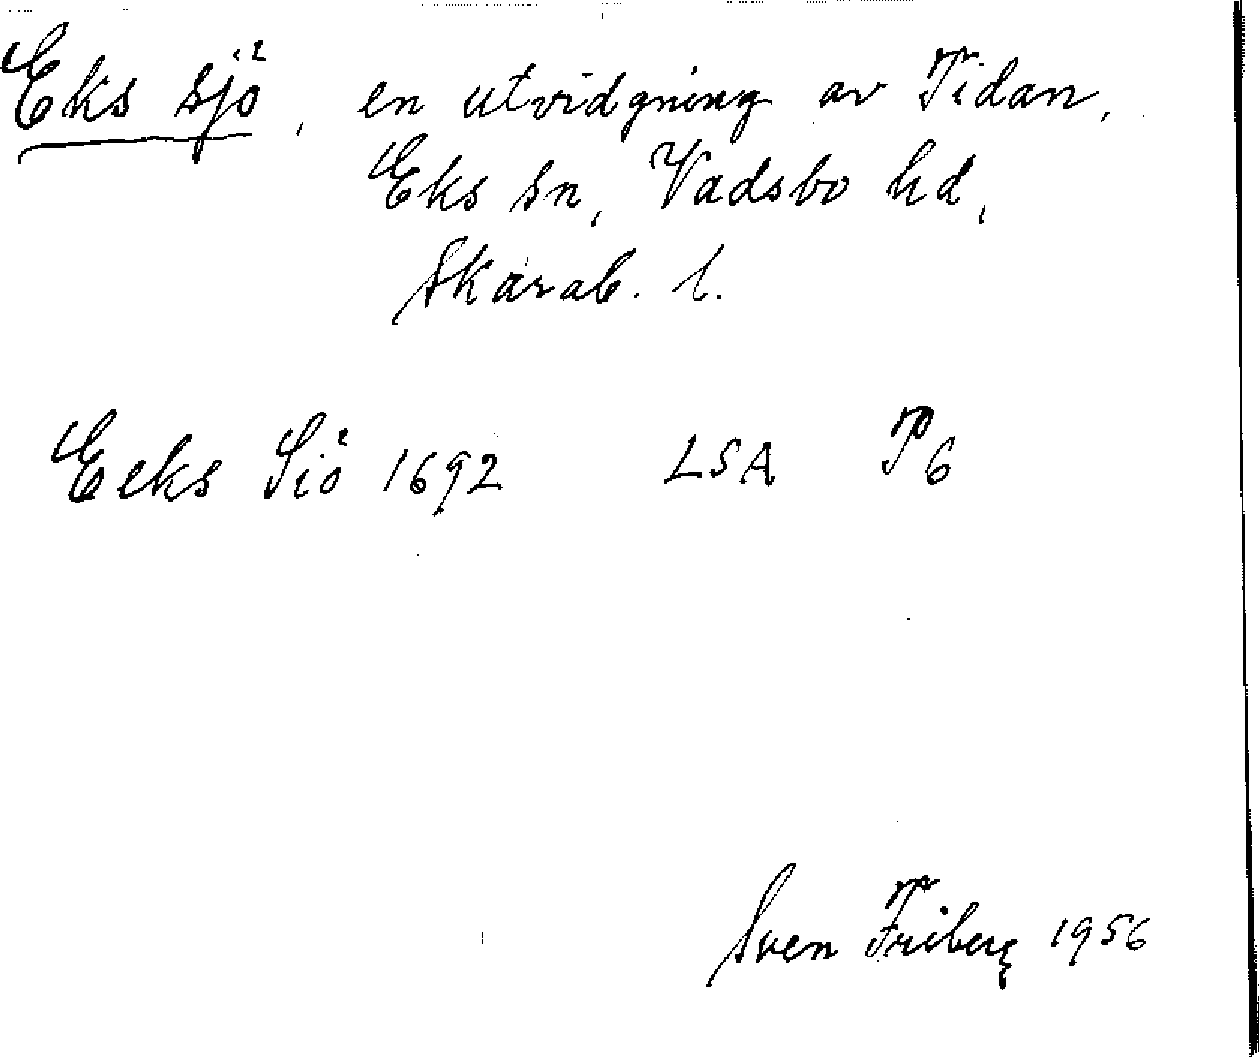 Eks sjö, en utvidgning av Tidan,
Eks sn, Vadsbo hd,
Skarab. l.
Eeks Siö 1692 LSA P6
Sven Friberg 1956